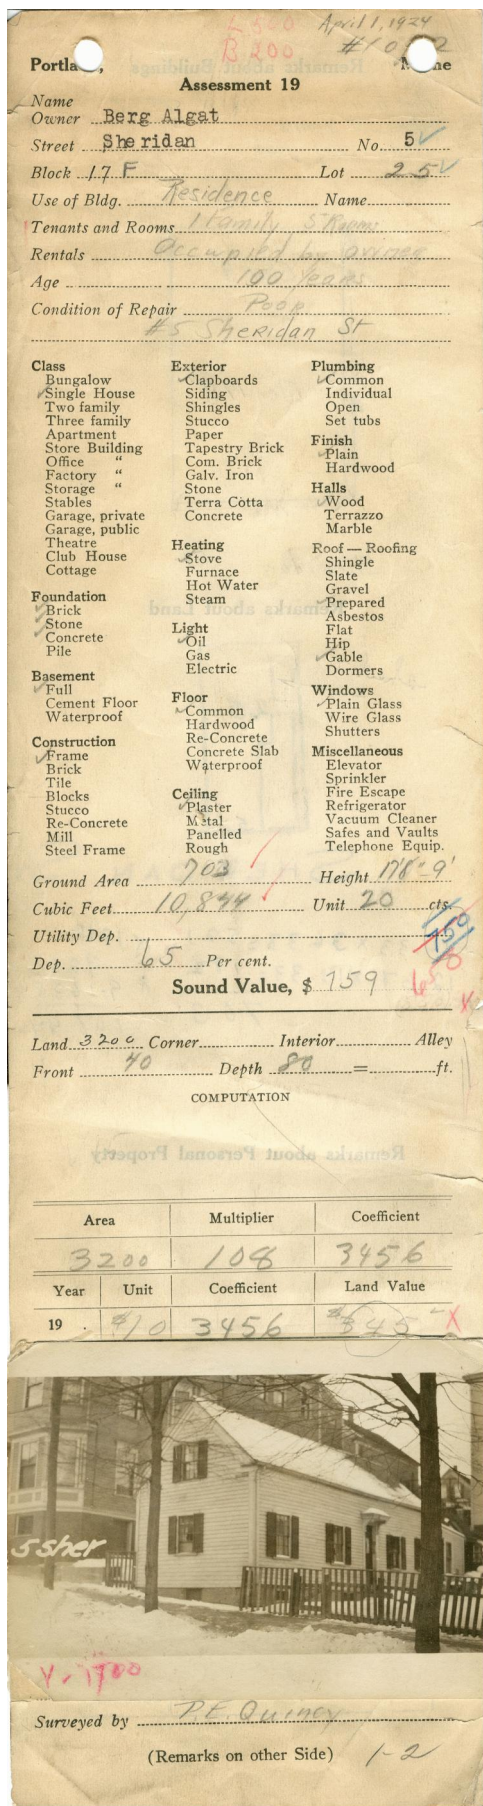 L 300 April 1, 1924
B 200
Portla , M ne
Assessment 19
Name
Owner Berg Algat
Street Sheridan No. 5
Block 17 F Lot 25
Use of Bldg. Residence Name
Tenants and Rooms 1 Family 5 Rooms
Rentals Occupied by owner
Age 100 Years
Condition of Repair Poor
#5 Sheridan St
Class
Bungalow
Single House
Two family
Three family
Apartment
Store Building
Office "
Factory "
Storage "
Stables
Garage, private
Garage, public
Theatre
Club House
Cottage
Foundation
Brick
Stone
Concrete
Pile
Basement
Full
Cement Floor
Waterproof
Construction
Frame
Brick
Tile
Blocks
Stucco
Re-Concrete
Mill
Steel Frame
Exterior
Clapboards
Siding
Shingles
Stucco
Paper
Tapestry Brick
Com. Brick
Galv. Iron
Stone
Terra Cotta
Concrete
Heating
Stove
Furnace
Hot Water
Steam
Light
Oil
Gas
Electric
Floor
Common
Hardwood
Re-Concrete
Concrete Slab
Waterproof
Ceiling
Plaster
Metal
Panelled
Rough
Plumbing
Common
Individual
Open
Set tubs
Finish
Plain
Hardwood
Halls
Wood
Terrazzo
Marble
Roof — Roofing
Shingle
Slate
Gravel
Prepared
Asbestos
Flat
Hip
Gable
Dormers
Windows
Plain Glass
Wire Glass
Shutters
Miscellaneous
Elevator
Sprinkler
Fire Escape
Refrigerator
Vacuum Cleaner
Safes and Vaults
Telephone Equip.
Ground Area 703 Height 17'8"-9'
Cubic Feet 10,844 Unit 20 cts.
Utility Dep. 750
Dep. 65 Per cent. 650
Sound Value, $ 759 X
Land 3200 Corner Interior Alley
Front 40 Depth 80 = ft.
COMPUTATION
Area Multiplier Coefficient
3200 108 3456
Year Unit Coefficient Land Value
19 . $10 3456 $345 X
5 sher
Surveyed by P.E. Quincy
(Remarks on other Side) 1-2